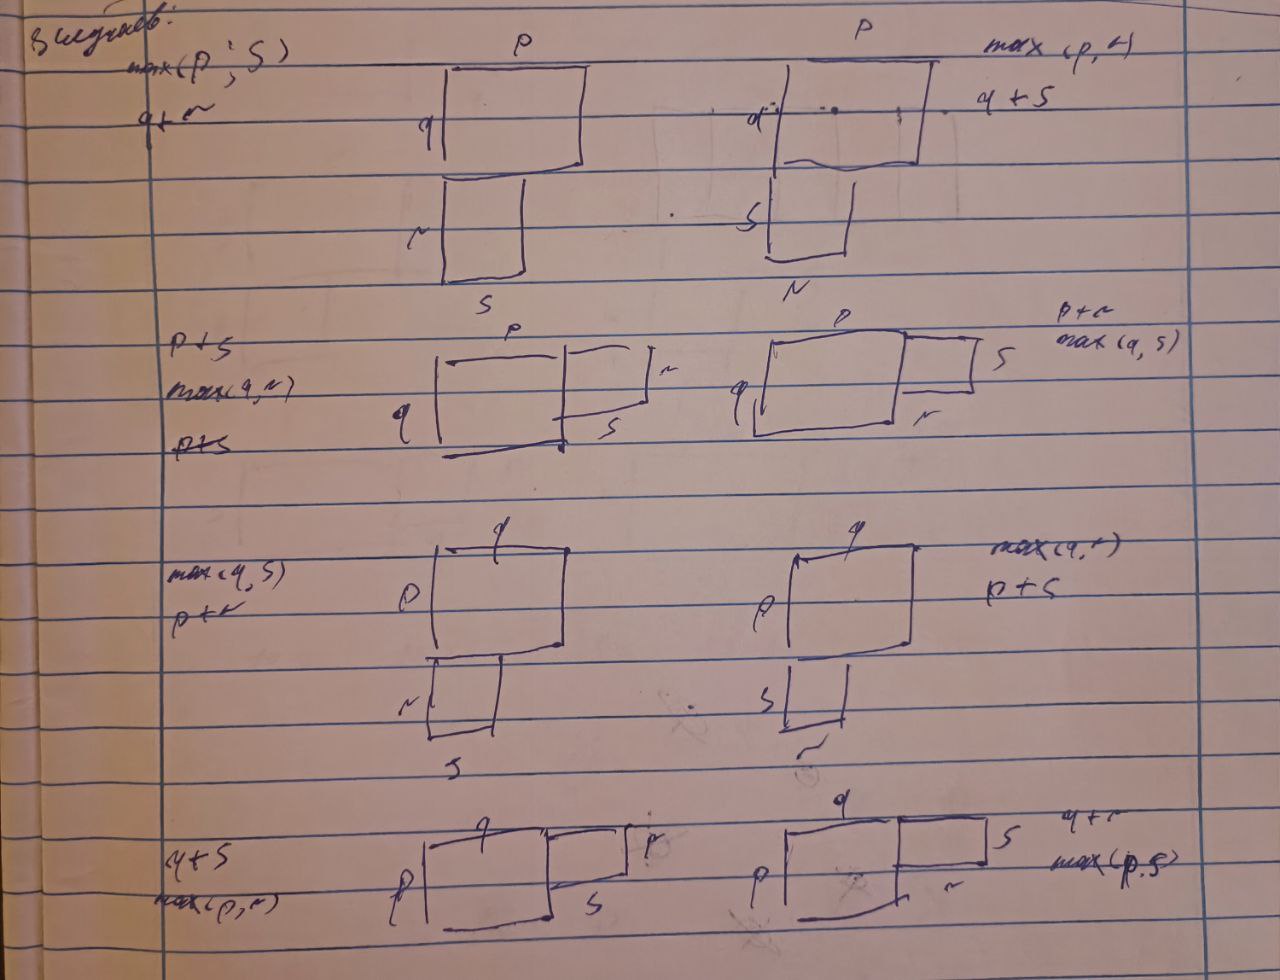 8 случаев:
max(p; s)
q+r
p
q
r
s
p
q
s
r
max(p, r)
q+s
p+s
max(q, r)
p+s
p
q
r
s
p
q
s
r
p+r
max(q, s)
max(q, s)
p+r
q
p
r
s
q
p
s
r
max(q, r)
p+s
q+s
max(p, r)
q
p
r
s
q
p
s
r
q+r
max(p, s)